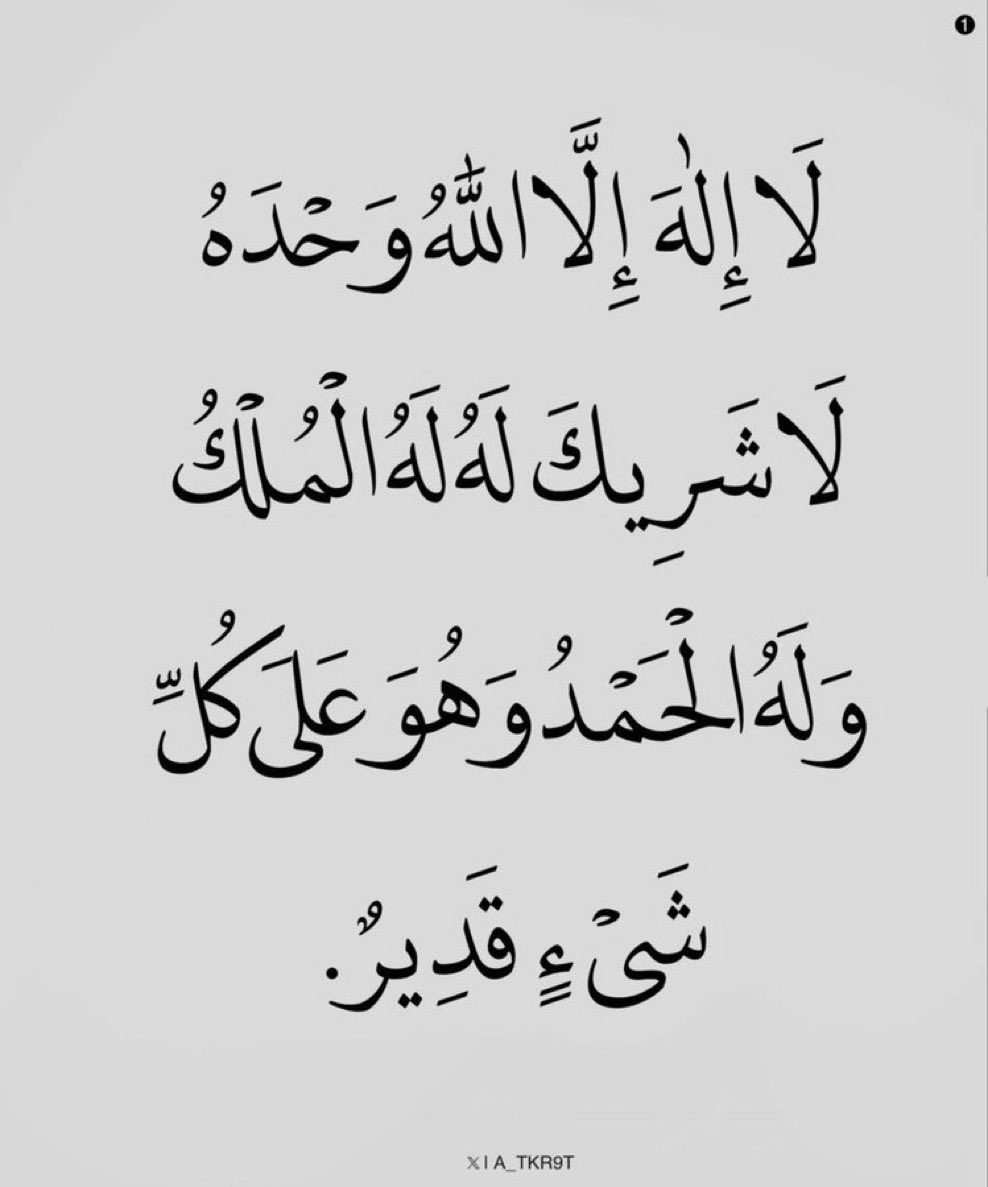 ❶
لَا إِلٰهَ إِلَّا اللّٰهُ وَحْدَهُ
لَا شَرِيكَ لَهُ لَهُ الْمُلْكُ
وَلَهُ الْحَمْدُ وَهُوَ عَلَىَ كُلِّ
شَىْءٍ قَدِيرٌ.
𝕏 | A_TKR9T